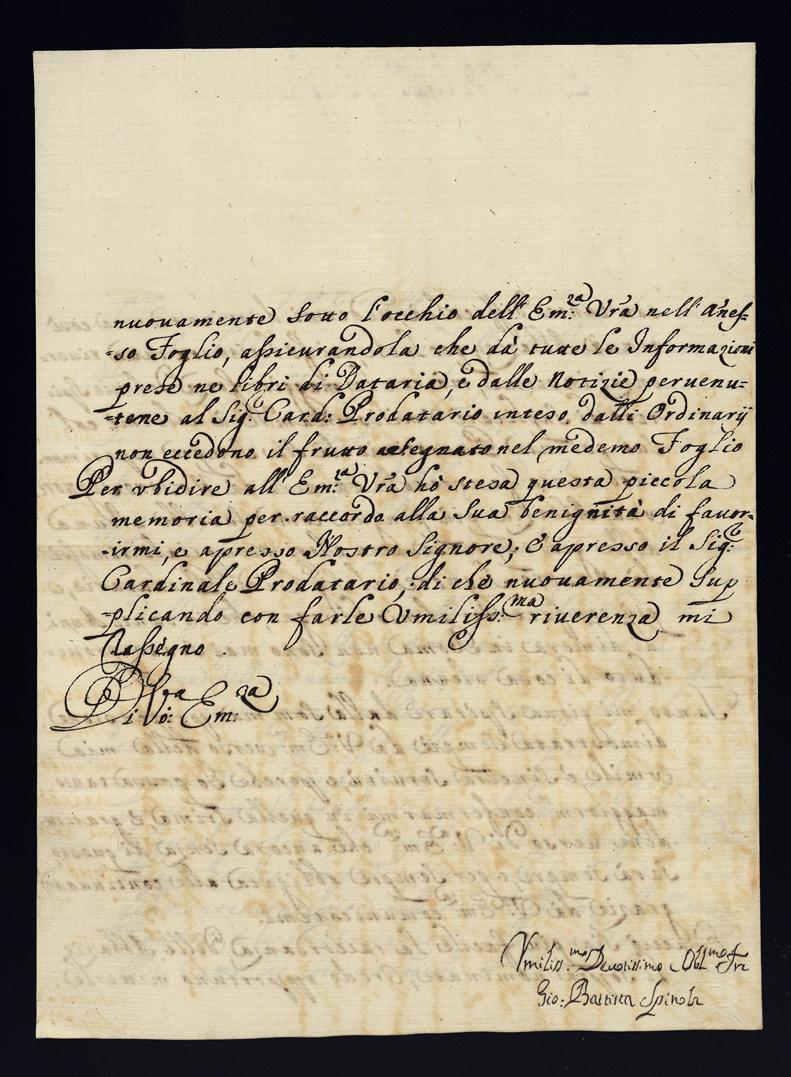 nuouamente sotto l'occhio dell' Em:za Vra nell' Anes=
=so Foglio, assicurandola che dà tutte le Informazioni
prese ne libri di Dataria, e dalle Notizie peruenu=
=tene al Sig: Card: Prodatario inteso dalli Ordinarij
non eccedono il frutto assegnato nel medemo Foglio
Per vbidire all' Em:za Vra hò stesa questa piccola
memoria per raccordo alla Sua benignità di fauor=
=irmi, e apresso Nostro Signore; E apresso il Sig:e
Cardinale Prodatario, di che nuouamente Sup
=plicando con farle Vmiliss:ma riuerenza mi
Rassegno.
Di Vo:ra Em:za
Vmiliss.mo Deuotissimo Obl.mo
Gio: Battista Spinola